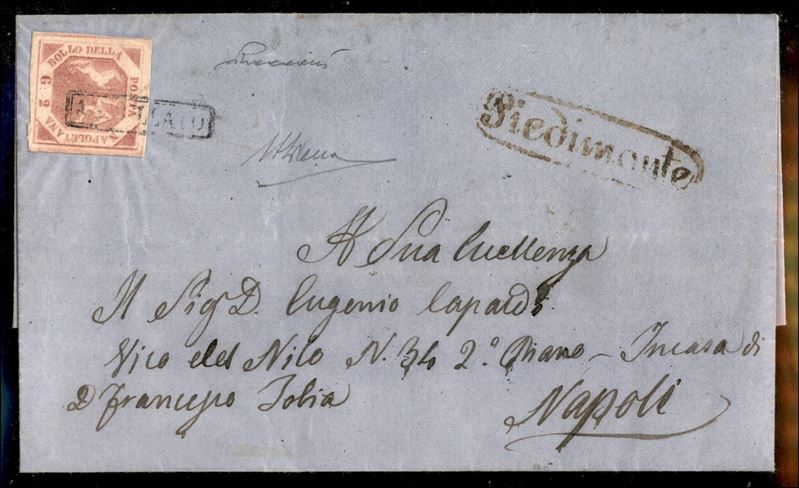 BOLLO DELLA
POSTA
NAPOLETANA
G 2
A LATO
Piedimonte
A Sua Eccellenza
Il Sig D. Eugenio Capardi
Vico del Nilo N. 34 2.º Piano - In casa di
D Francesco Tobia
Napoli